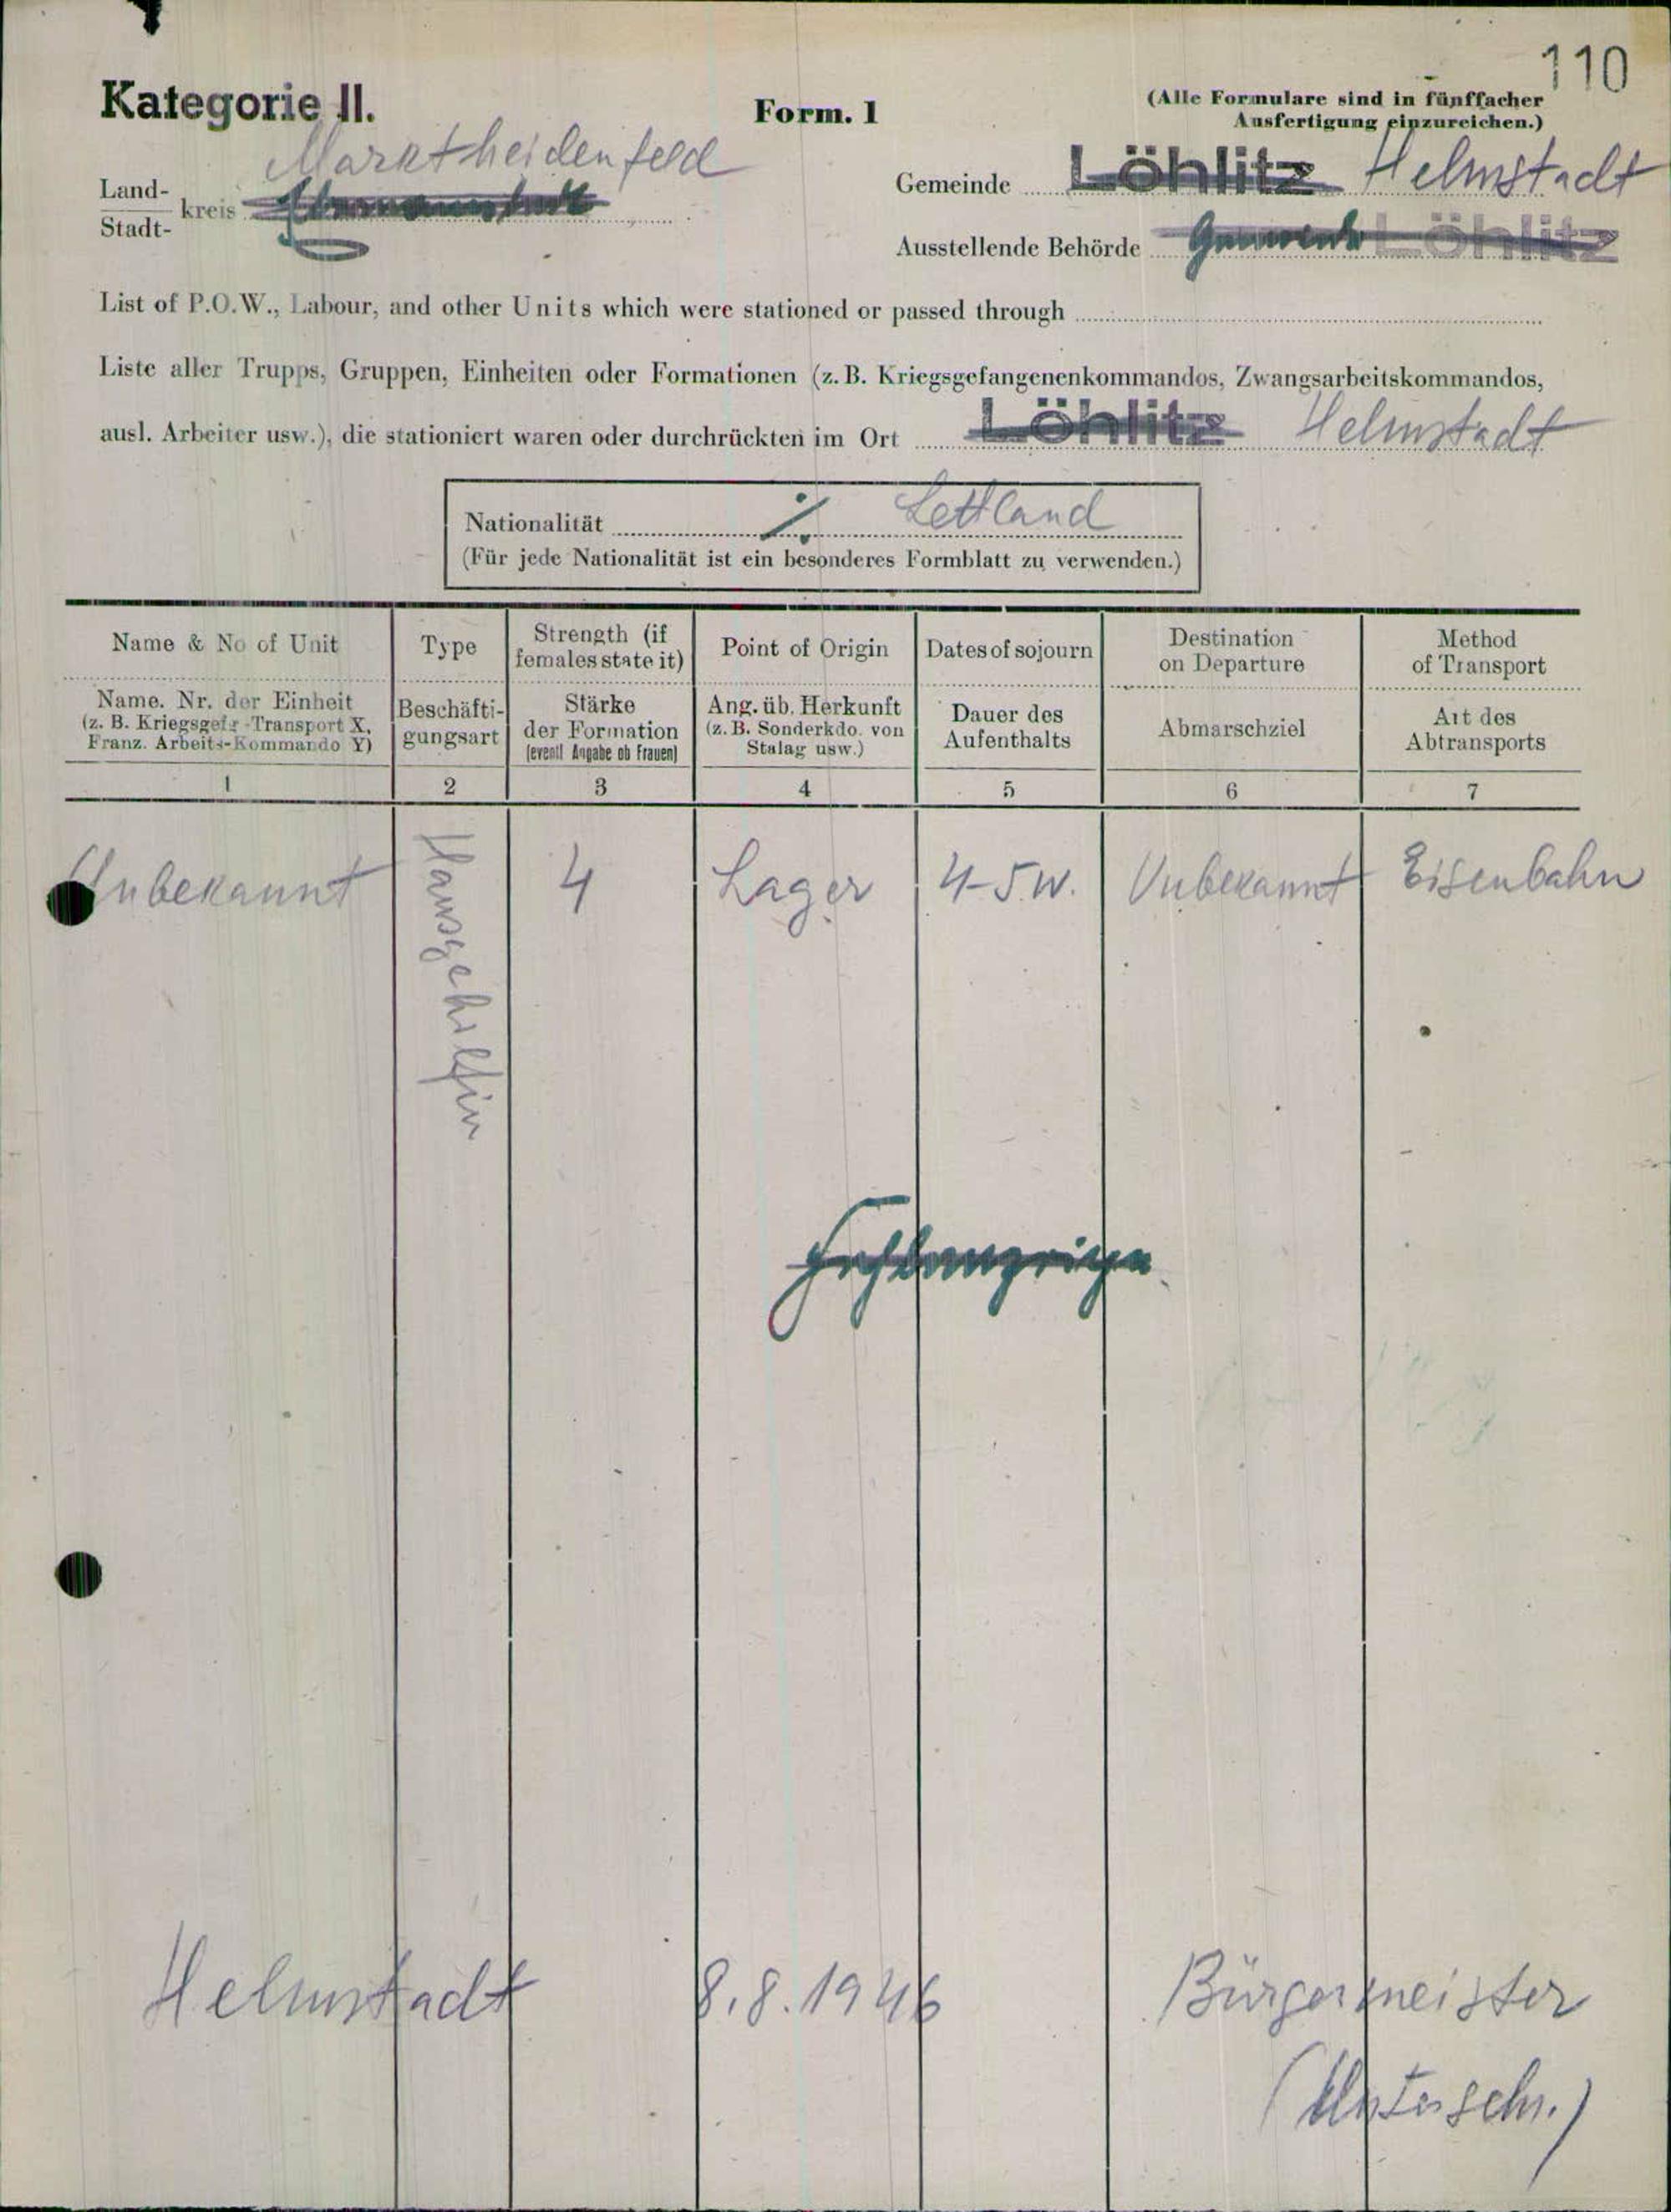 110
Kategorie II.
Form. 1
(Alle Formulare sind in fünffacher
Ausfertigung einzureichen.)
Marktheidenfeld
Land-
Stadt-
kreis
Gemeinde Löhlitz Helmstadt
Ausstellende Behörde Gemeinde Löhlitz
List of P.O.W., Labour, and other Units which were stationed or passed through
Liste aller Trupps, Gruppen, Einheiten oder Formationen (z. B. Kriegsgefangenenkommandos, Zwangsarbeitskommandos,
ausl. Arbeiter usw.), die stationiert waren oder durchrückten im Ort Löhlitz Helmstadt
Nationalität ./. Lettland
(Für jede Nationalität ist ein besonderes Formblatt zu verwenden.)
Name & No of Unit
Type
Strength (if
females state it)
Point of Origin
Dates of sojourn
Destination
on Departure
Method
of Transport
Name. Nr. der Einheit
(z. B. Kriegsgefg-Transport X,
Franz. Arbeits-Kommando Y)
Beschäfti-
gungsart
Stärke
der Formation
(eventl Angabe ob Frauen)
Ang. üb. Herkunft
(z. B. Sonderkdo. von
Stalag usw.)
Dauer des
Aufenthalts
Abmarschziel
Art des
Abtransports
1 2 3 4 5 6 7
Unbekannt Hausgehilfin 4 Lager 4-5 W. Unbekannt Eisenbahn
Fehlanzeige
Helmstadt 8.8.1946 Bürgermeister
(Unterschr.)